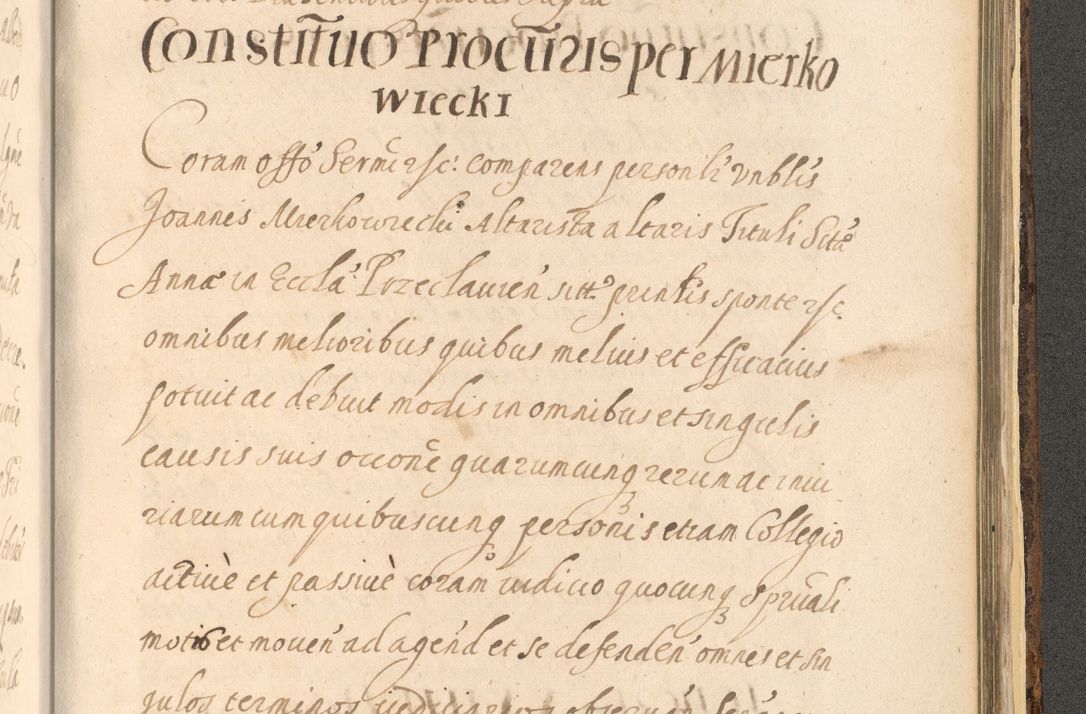 Constituo Procuris per Mierko
wiecki
Coram offo Sermi etc: comparens personlr vnblis
Joannes Mierkowiecki Altarista altaris Tituli Sctae
Annae in Eccla Przeclauien sitt prntis sponte etc.
omnibus melioribus quibus melius et efficacius
potuit ac debuit modis in omnibus et singulis
causis suis occone quarumcunq rerum ac iniu
riarum cum quibuscunq personis etiam Collegio
actiue et passiue coram iudicio quocunq spruali
motis et mouen ad agend et se defenden omnes et sin
gulos terminos iudiciarios obseruan